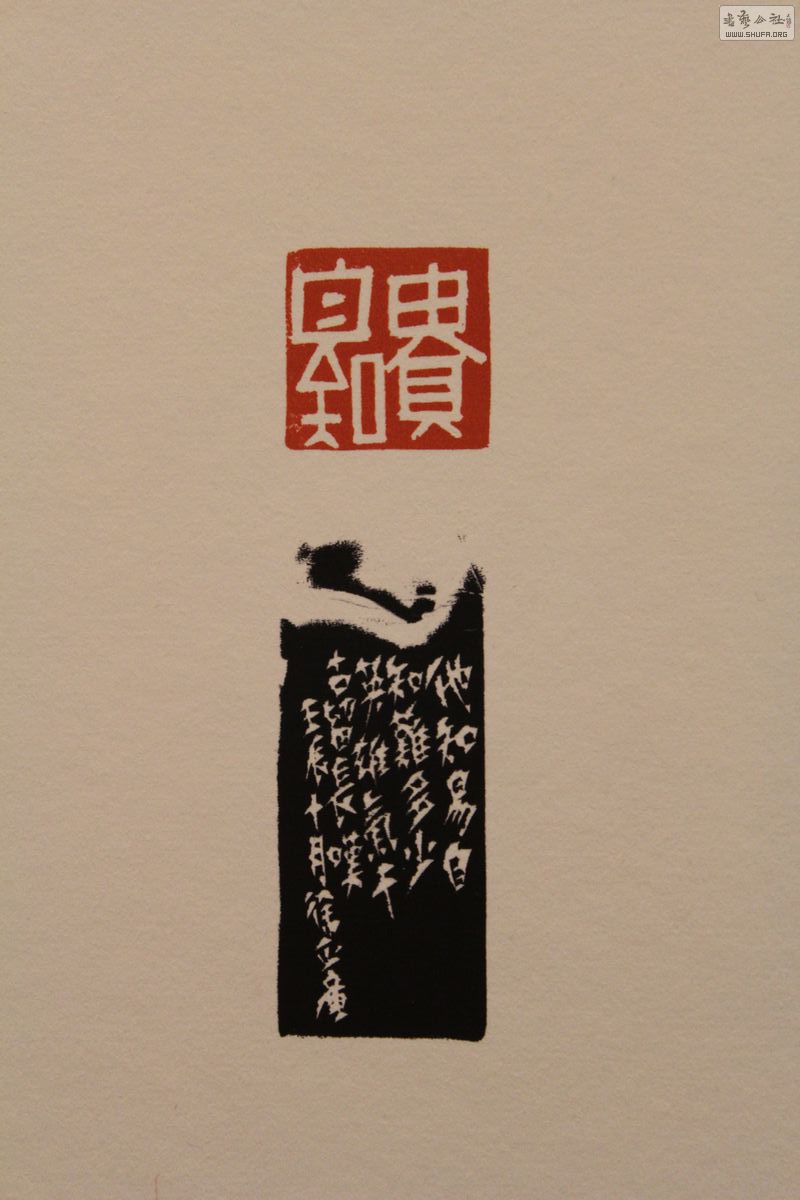 書藝公社
WWW.SHUFA.ORG
貴
自知
他知易自
知難多少
英雄氣千
古留長嘆
壬辰十月徐正廉